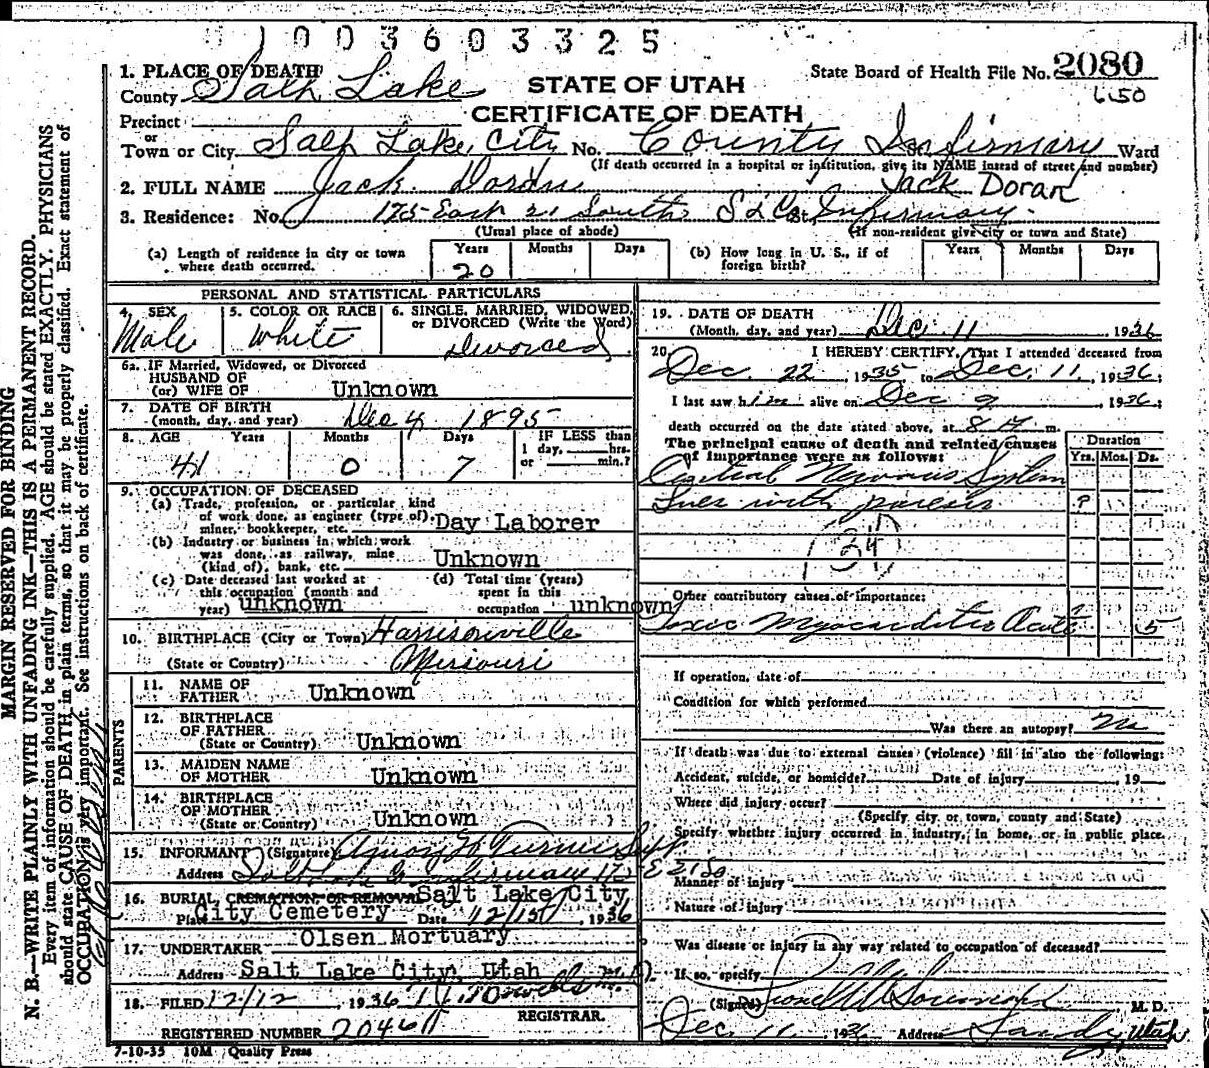 1003603325
1. PLACE OF DEATH
STATE OF UTAH
State Board of Health File No. 2080
County Salt Lake
6150
CERTIFICATE OF DEATH
Precinct
or
Town or City Salt Lake City No. County Infirmary Ward
(If death occurred in a hospital or institution, give its NAME instead of street and number)
2. FULL NAME Jack Doran Jack Doran
3. Residence: No. 175 East 21 South S L Co. Infirmary
(Usual place of abode) (If non-resident give city or town and State)
(a) Length of residence in city or town where death occurred. Years 20 Months Days
(b) How long in U. S., if of foreign birth? Years Months Days
PERSONAL AND STATISTICAL PARTICULARS
4. SEX Male
5. COLOR OR RACE White
6. SINGLE, MARRIED, WIDOWED, or DIVORCED (Write the Word) Divorced
6a. IF Married, Widowed, or Divorced
HUSBAND OF
(or) WIFE OF Unknown
7. DATE OF BIRTH
(month, day, and year) Dec 4 1895
8. AGE Years Months Days IF LESS than
1 day, hrs.
or min.?
41 0 7
9. OCCUPATION OF DECEASED
(a) Trade, profession, or particular kind
of work done, as engineer (type of),
miner, bookkeeper, etc. Day Laborer
(b) Industry or business in which work
was done, as railway, mine
(kind of), bank, etc. Unknown
(c) Date deceased last worked at
this occupation (month and
year) unknown
(d) Total time (years)
spent in this
occupation unknown
10. BIRTHPLACE (City or Town) Harrisonville
(State or Country) Missouri
PARENTS
11. NAME OF
FATHER Unknown
12. BIRTHPLACE
OF FATHER
(State or Country) Unknown
13. MAIDEN NAME
OF MOTHER Unknown
14. BIRTHPLACE
OF MOTHER
(State or Country) Unknown
15. INFORMANT (Signature) Turner Supt
Address Salt Lake Co Infirmary 175 E 21 So
16. BURIAL, CREMATION, OR REMOVAL Salt Lake City
Place City Cemetery Date 12/15/ 1936
17. UNDERTAKER Olsen Mortuary
Address Salt Lake City, Utah
18. FILED 12/12, 1936
REGISTRAR.
REGISTERED NUMBER 2046
7-10-35 10M Quality Press
19. DATE OF DEATH
(Month, day, and year) Dec 11, 1936
20. I HEREBY CERTIFY, That I attended deceased from
Dec. 22, 1935 to Dec. 11, 1936;
I last saw him alive on Dec 9, 1936;
death occurred on the date stated above, at 8 m.
The principal cause of death and related causes
of importance were as follows:
Duration
Yrs. Mos. Ds.
Central Nervous System
Lues with paresis ?
34
Other contributory causes of importance:
Toxic Myocarditis Acute 5
If operation, date of
Condition for which performed
Was there an autopsy? No
If death was due to external causes (violence) fill in also the following:
Accident, suicide, or homicide? Date of injury 19
Where did injury occur?
(Specify city or town, county and State)
Specify whether injury occurred in industry, in home, or in public place.
Manner of injury
Nature of injury
Was disease or injury in any way related to occupation of deceased?
If so, specify
(Signed) M. D.
Dec. 11, 1936 Address Sandy, Utah
MARGIN RESERVED FOR BINDING
N. B.—WRITE PLAINLY WITH UNFADING INK—THIS IS A PERMANENT RECORD.
Every item of information should be carefully supplied. AGE should be stated EXACTLY. PHYSICIANS
should state CAUSE OF DEATH in plain terms, so that it may be properly classified. Exact statement of
OCCUPATION is very important. See instructions on back of certificate.